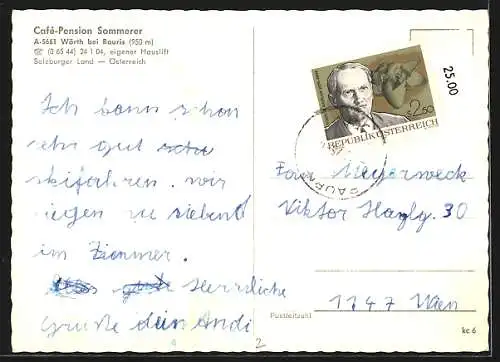 Café-Pension Sommerer
A-5661 Wörth bei Rauris (950 m)
☏ (0 65 44) 24 1 04, eigener Hauslift
Salzburger Land — Österreich
25.00
S 2.50
REPUBLIK ÖSTERREICH
RAURIS
Ich kann schon
sehr gut
skifahren. wir
liegen zu siebend
im Zimmer.
Herrliche
Grüße dein Andi
2
Meyerweck
Viktor 30
1147 Wien
Postleitzahl
kc 6